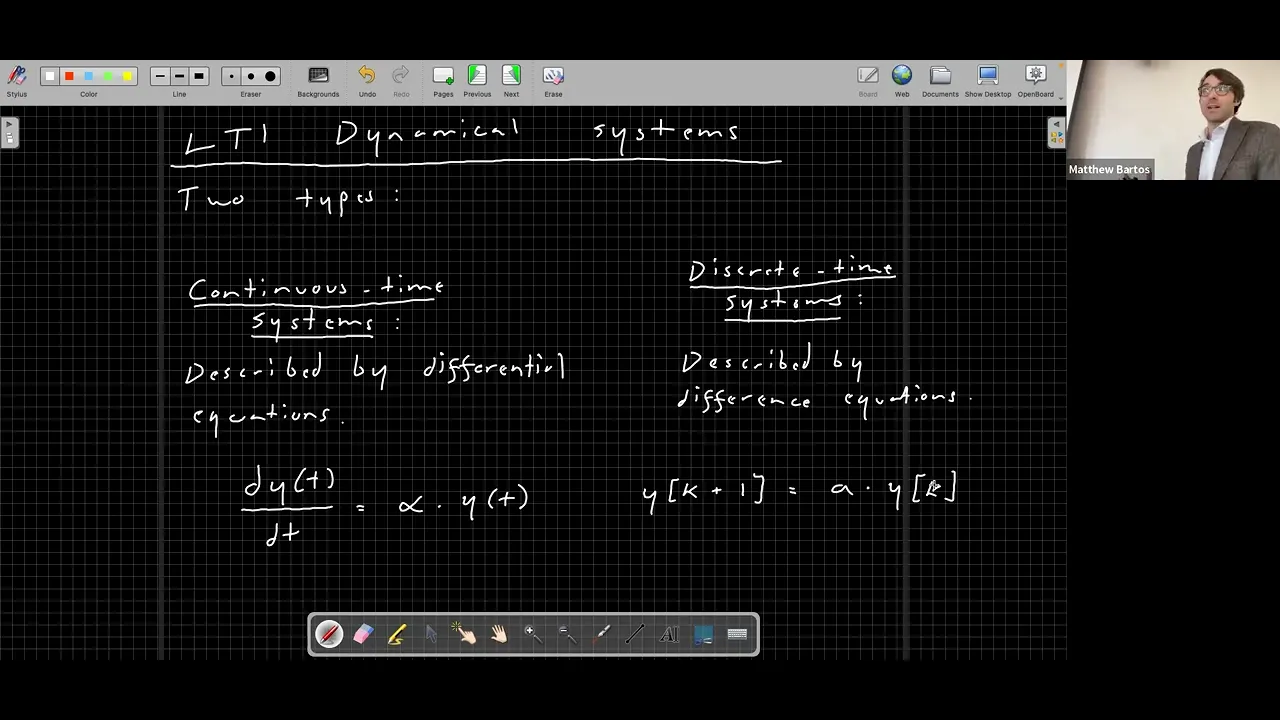 Stylus Color Line Eraser Backgrounds Undo Redo Pages Previous Next Erase Board Web Documents Show Desktop OpenBoard
Matthew Bartos
LTI Dynamical systems
Two types:
Continuous-time
systems:
Described by differential
equations.
dy(t)
dt
= α · y(t)
Discrete-time
systems:
Described by
difference equations.
y[k + 1] = a · y[k]
AI